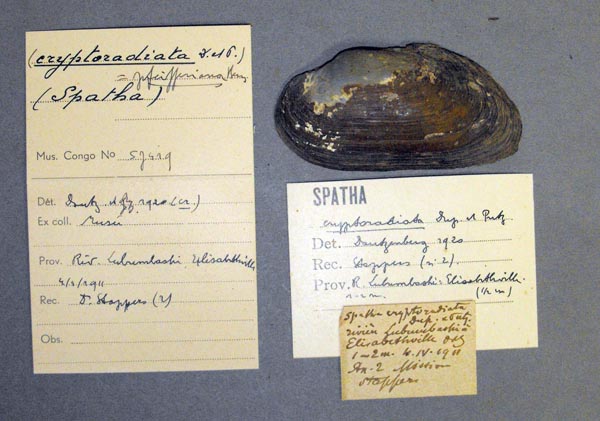 (cryptoradiata D. et P.)
= pfeifferiana
(Spatha)
Mus. Congo No 57419
Dét. Dautz. 1920
Ex coll. Musée
Prov. Riv. Lubumbashi Elisabethville
1911
Rec. Dr Stappers (2)
Obs.
SPATHA
cryptoradiata Dup. et Putz.
Det. Dautzenberg 1920
Rec. Stappers (n. 2).
Prov. R. Lubumbashi-Elisabethville.
Spatha cryptoradiata
Dup. et Putz.
rivière Lubumbashi à
Elisabethville
1-2 m. 4.IV.1911
Mission
Stappers